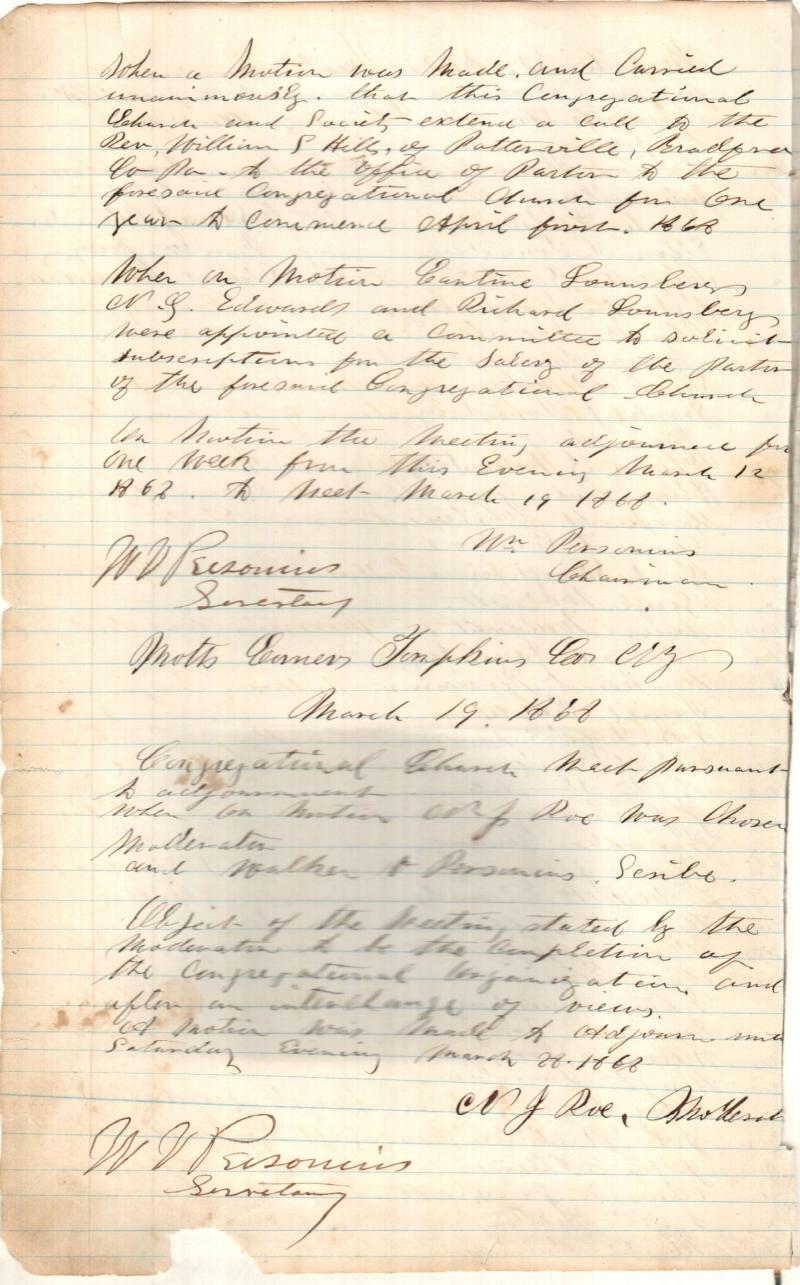 When a Motion was Made. and Carried
unanimously. that this Congregational
Church and Society extend a call to the
Rev, William S Hills, of Potterville, Bradford
Co Pa - to the office of Pastor to the
foresaid Congregational Church for One
year to commence April first. 1868
When on Motion Cantine Lounsbery
N. G. Edwards and Richard Lounsbery
were appointed a Committee to solicit
subscriptions for the Salery of the Pastor
of the foresaid Congregational Church
On Motion the Meeting adjourned for
one week from this Evening March 12
1868. to Meet March 19 1868.
Wm Personius
Chairman.
W V Personius
Secretary
Motts Corners Tompkins Co NY
March 19. 1868
Congregational Church Meet pursuant
to adjournment
When on Motion N J Roe was Chosen
Moderator
and Walker V Personius. Scribe.
Object of the Meeting stated by the
Moderator to be the Completion of
the Congregational Organization. and
after an interchange of views.
A Motion was Made to Adjourn until
Saturday Evening March 28. 1868
N J Roe, Moderat
W V Personius
Secretary